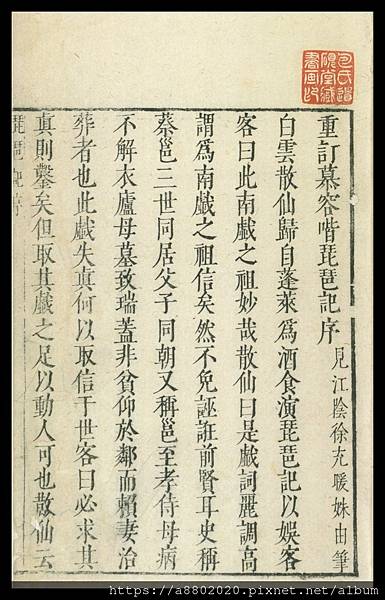 重訂慕容喈琵琶記序 見江陰徐充暖姝由筆
白雲散仙歸自蓬萊爲酒食演琵琶記以娛客
客曰此南戲之祖妙哉散仙曰是戲詞麗調高
謂爲南戲之祖信矣然不免誣誑前賢耳史稱
蔡邕三世同居父子同朝又稱邕至孝侍母病
不解衣廬母墓致瑞蓋非貧仰於鄰而賴妻治
葬者也此戲失真何以取信于世客曰必求其
真則鑿矣但取其戲之足以動人可也散仙云
琵琶記序
https://a8802020.pixnet.net/album